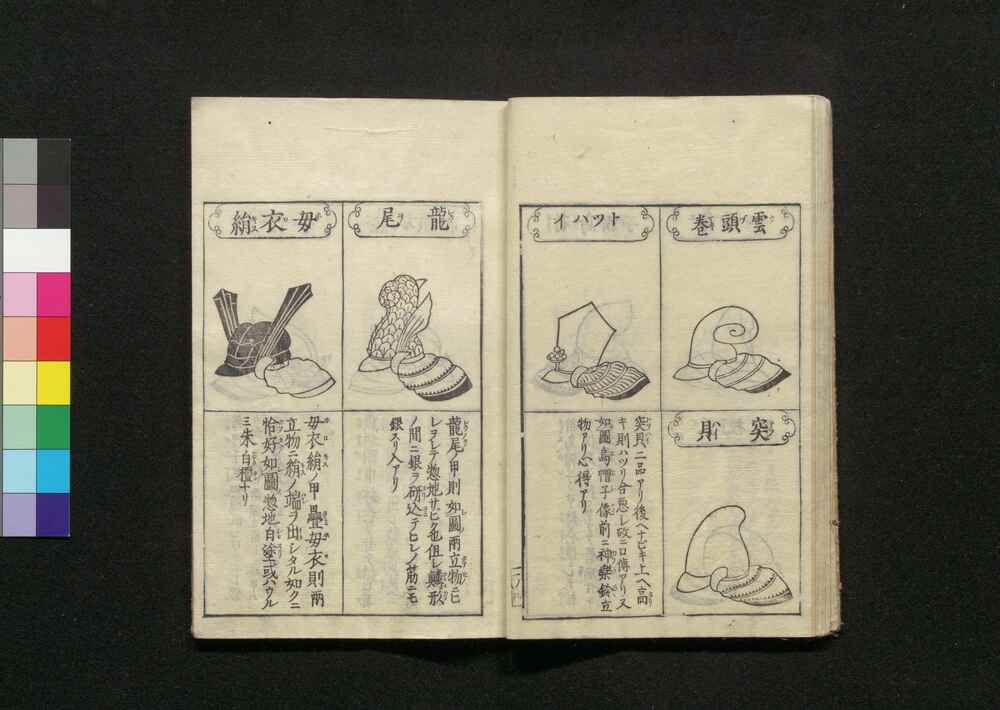 雲頭巻
突貝
トツハイ
突貝ニ品アリノ後ヘナビキ上ヘ高
キ則ハツリ合悪レ故ニ口傳アリ又
如圖烏帽子像前ニ神樂鈴立
物アリ心得アリ
龍尾
龍尾ノ甲則如圖兩立物ニヒ
レヲレテ惣地サヒタ也但レ鱗形
ノ間ニ銀ヲ研込テヒレノ筋ニモ
銀スリ入アリ
毋衣絹
毋衣絹ノ甲疊毋衣則兩
立物ニ絹ノ端ヲ出シタル如クニ
恰好如圖惣地白塗或ハウル
三朱白檀ナリ